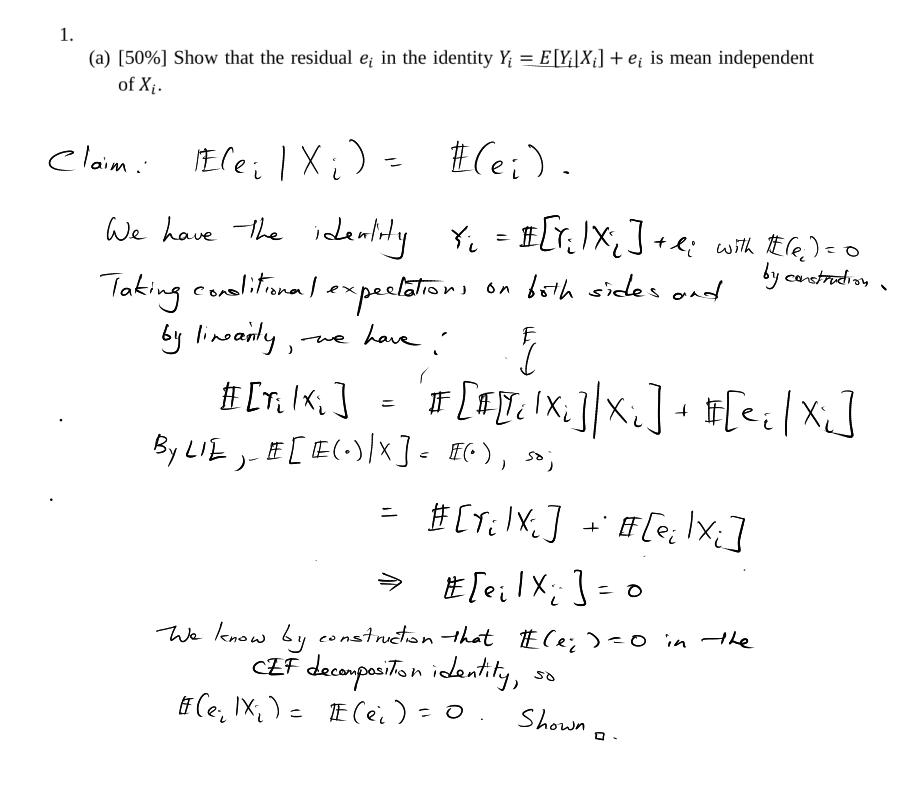 1.
(a) [50%] Show that the residual eᵢ in the identity Yᵢ = E[Yᵢ|Xᵢ] + eᵢ is mean independent
of Xᵢ.
Claim: 𝔼(eᵢ | Xᵢ) = 𝔼(eᵢ).
We have the identity Yᵢ = 𝔼[Yᵢ|Xᵢ] + eᵢ with 𝔼(eᵢ) = 0
by construction.
Taking conditional expectations on both sides and
by linearity, we have:
E
↓
𝔼[Yᵢ|Xᵢ] = 𝔼[𝔼[Yᵢ|Xᵢ]|Xᵢ] + 𝔼[eᵢ | Xᵢ]
By LIE, 𝔼[𝔼(·)|X] = 𝔼(·), so;
= 𝔼[Yᵢ|Xᵢ] + 𝔼[eᵢ|Xᵢ]
⇒ 𝔼[eᵢ|Xᵢ] = 0
We know by construction that 𝔼(eᵢ) = 0 in the
CEF decomposition identity, so
𝔼(eᵢ|Xᵢ) = 𝔼(eᵢ) = 0. Shown □.